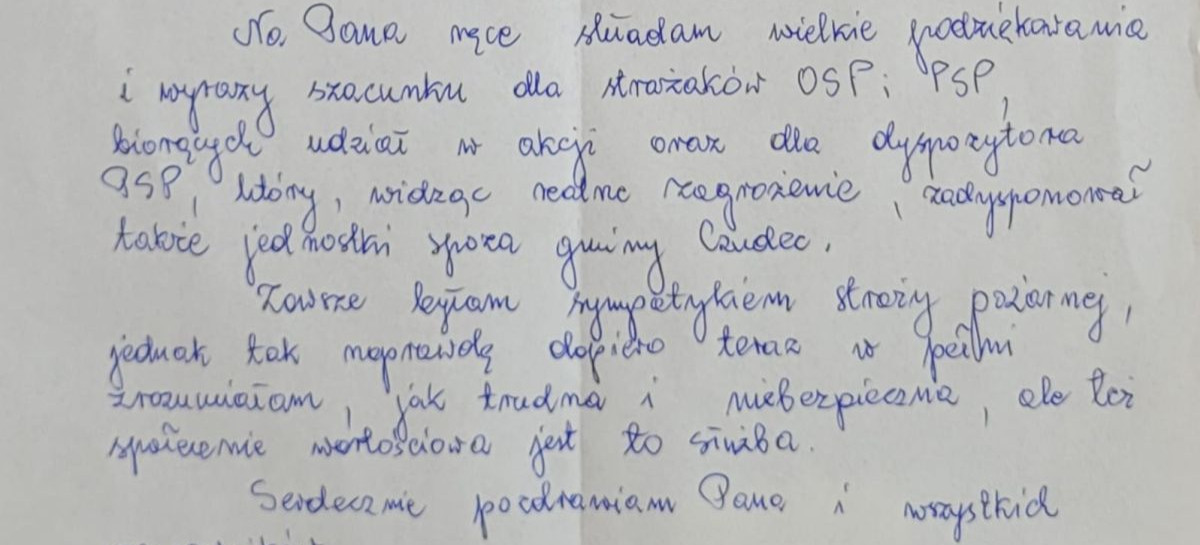 Na Pana ręce składam wielkie podziękowania
i wyrazy szacunku dla strażaków OSP i PSP,
biorących udział w akcji oraz dla dyspozytora
PSP, który, widząc realne zagrożenie, zadysponował
także jednostki spoza gminy Czudec.
Zawsze byłam sympatykiem straży pożarnej,
jednak tak naprawdę dopiero teraz w pełni
zrozumiałam, jak trudna i niebezpieczna, ale też
społecznie wartościowa jest to służba.
Serdecznie pozdrawiam Pana i wszystkich